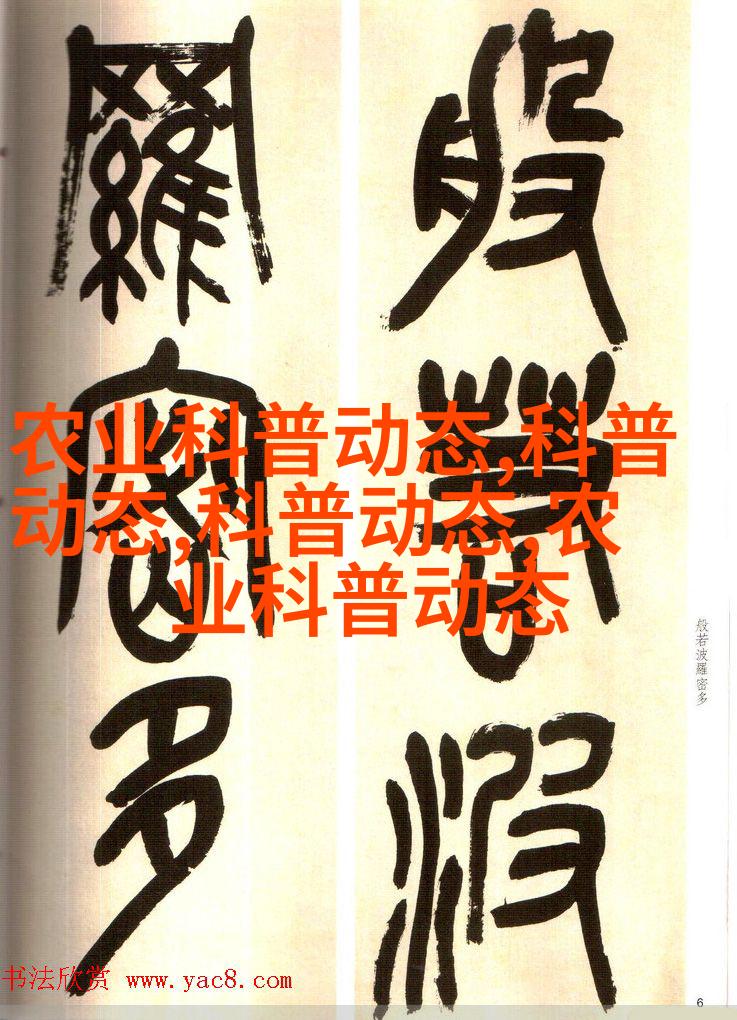 般若波
羅密多
农业科普动态,科普
动态,科普动态,农
业科普动态
般若波羅密多
书法欣赏 www.yac8.com
6